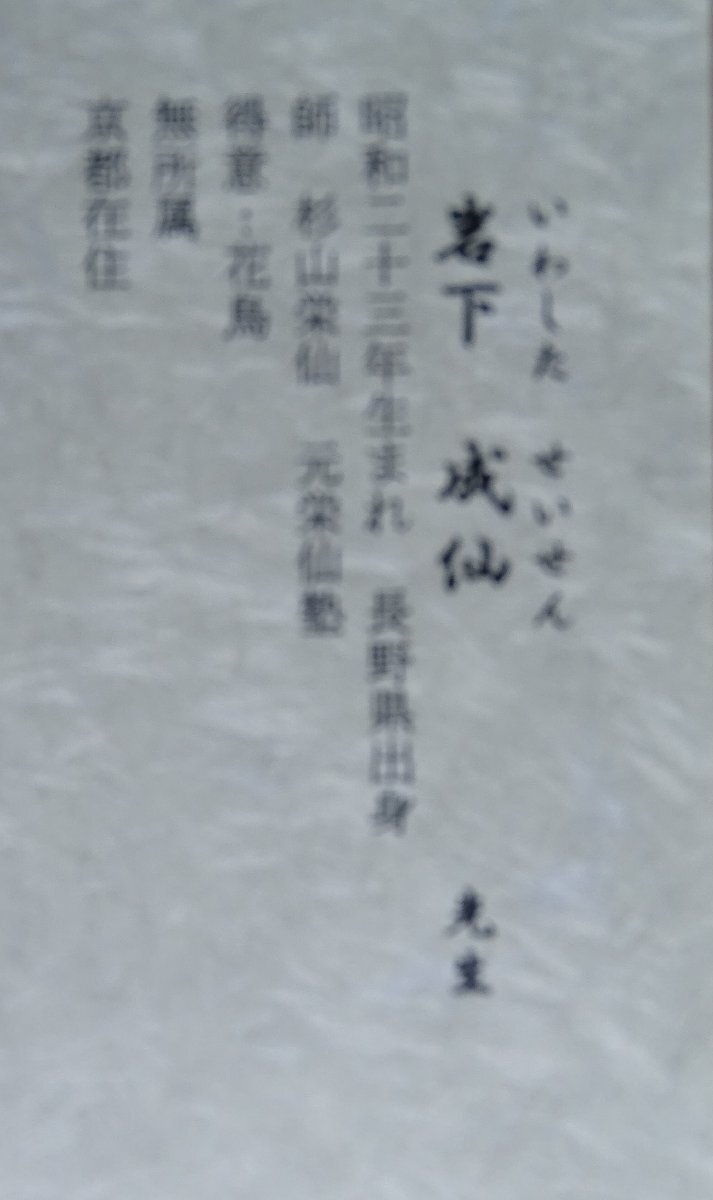 いわした せいせん
岩下 成仙 先生
昭和二十三年生まれ 長野県出身
師 杉山栄仙 元栄仙塾
得意：花鳥
無所属
京都在住